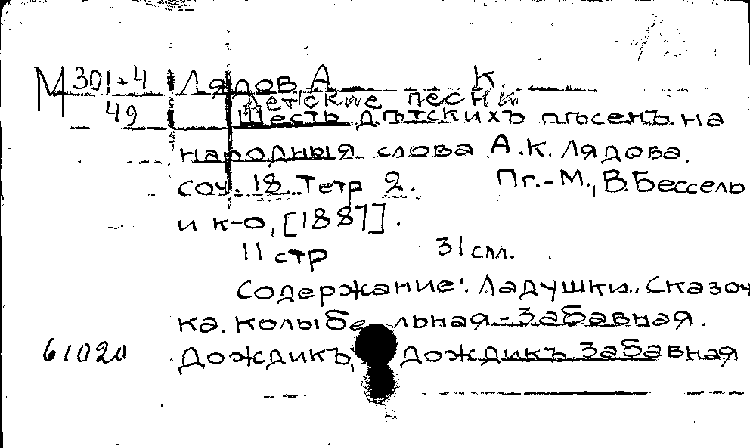 М 301-4 Лядов А. К.
49 Детские песни
Шесть дѣтскихъ пѣсенъ на
народныя слова А.К. Лядова.
соч. 18. Тетр 2. Пг.-М., В. Бессель
и к-о, [1887].
11 стр 31 см.
Содержание: Ладушки. Сказоч
ка. Колыбельная-Забавная.
61020 Дождикъ, дождикъ Забавная